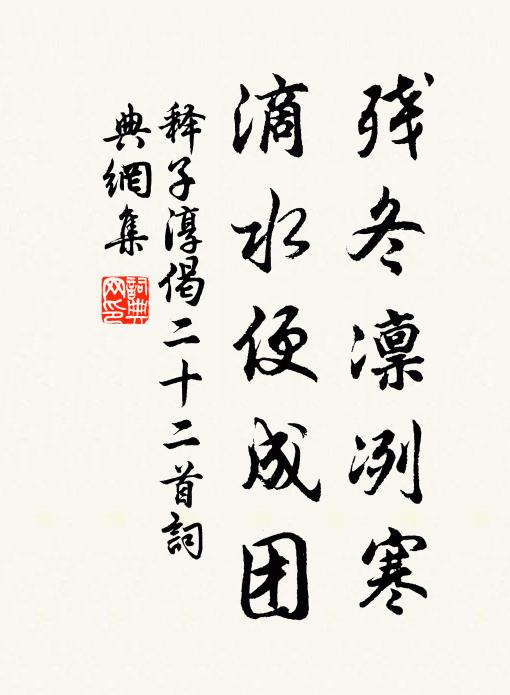 残冬凛冽寒
滴水便成团
释子淳偈二十二首詞
典網集
詞典
网印